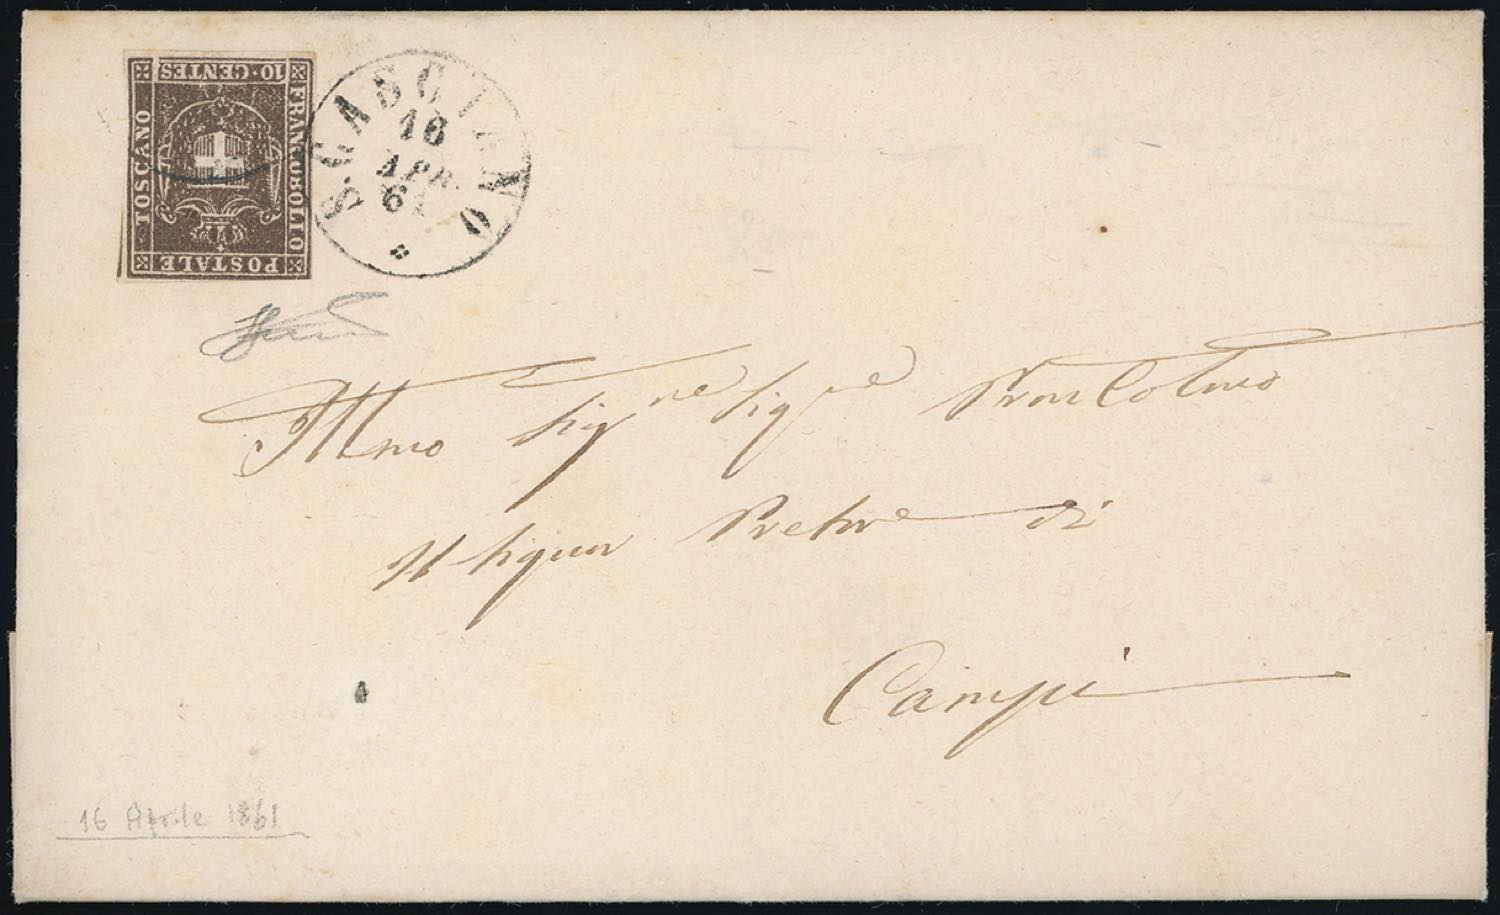 10 · CENTES
FRANCOBOLLO
POSTALE
TOSCANO
S. CASCIANO
16
APR.
61
Illmo Sig^re Sig^re Pron Colmo
Il Signor Pretore di
Campi
16 Aprile 1861